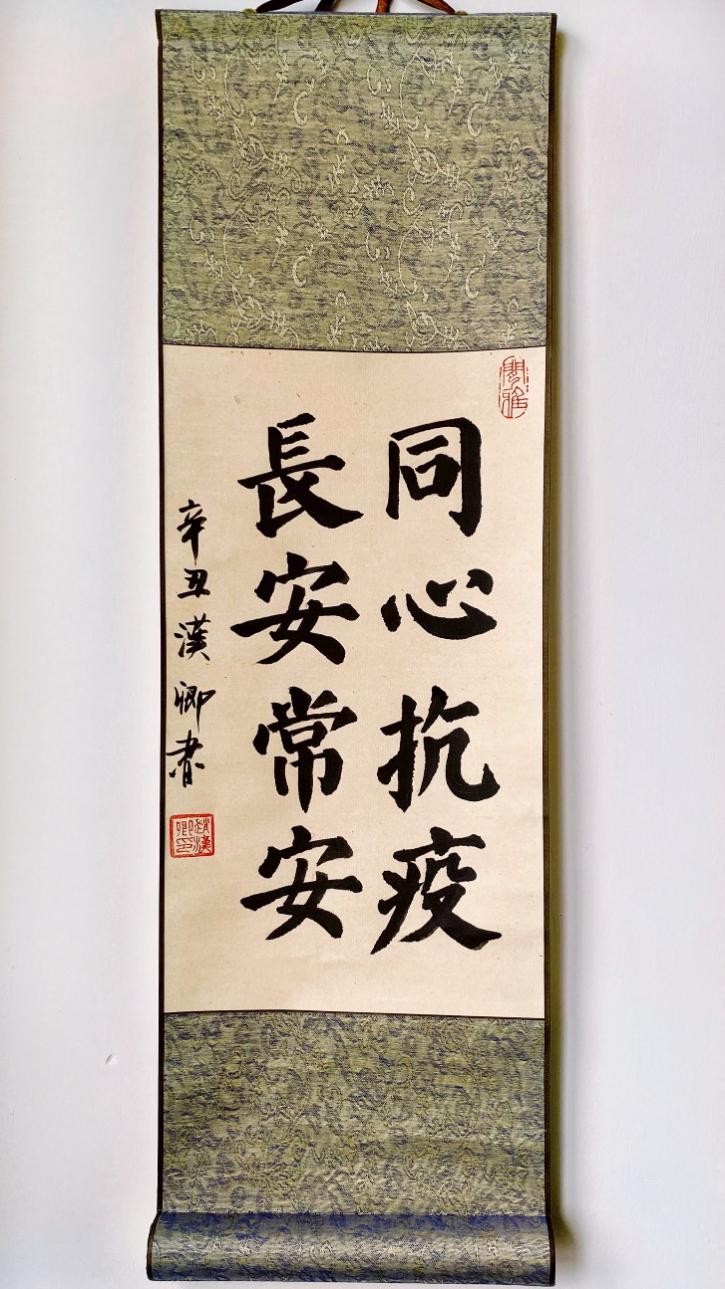 同心抗疫
長安常安
辛丑漢卿書